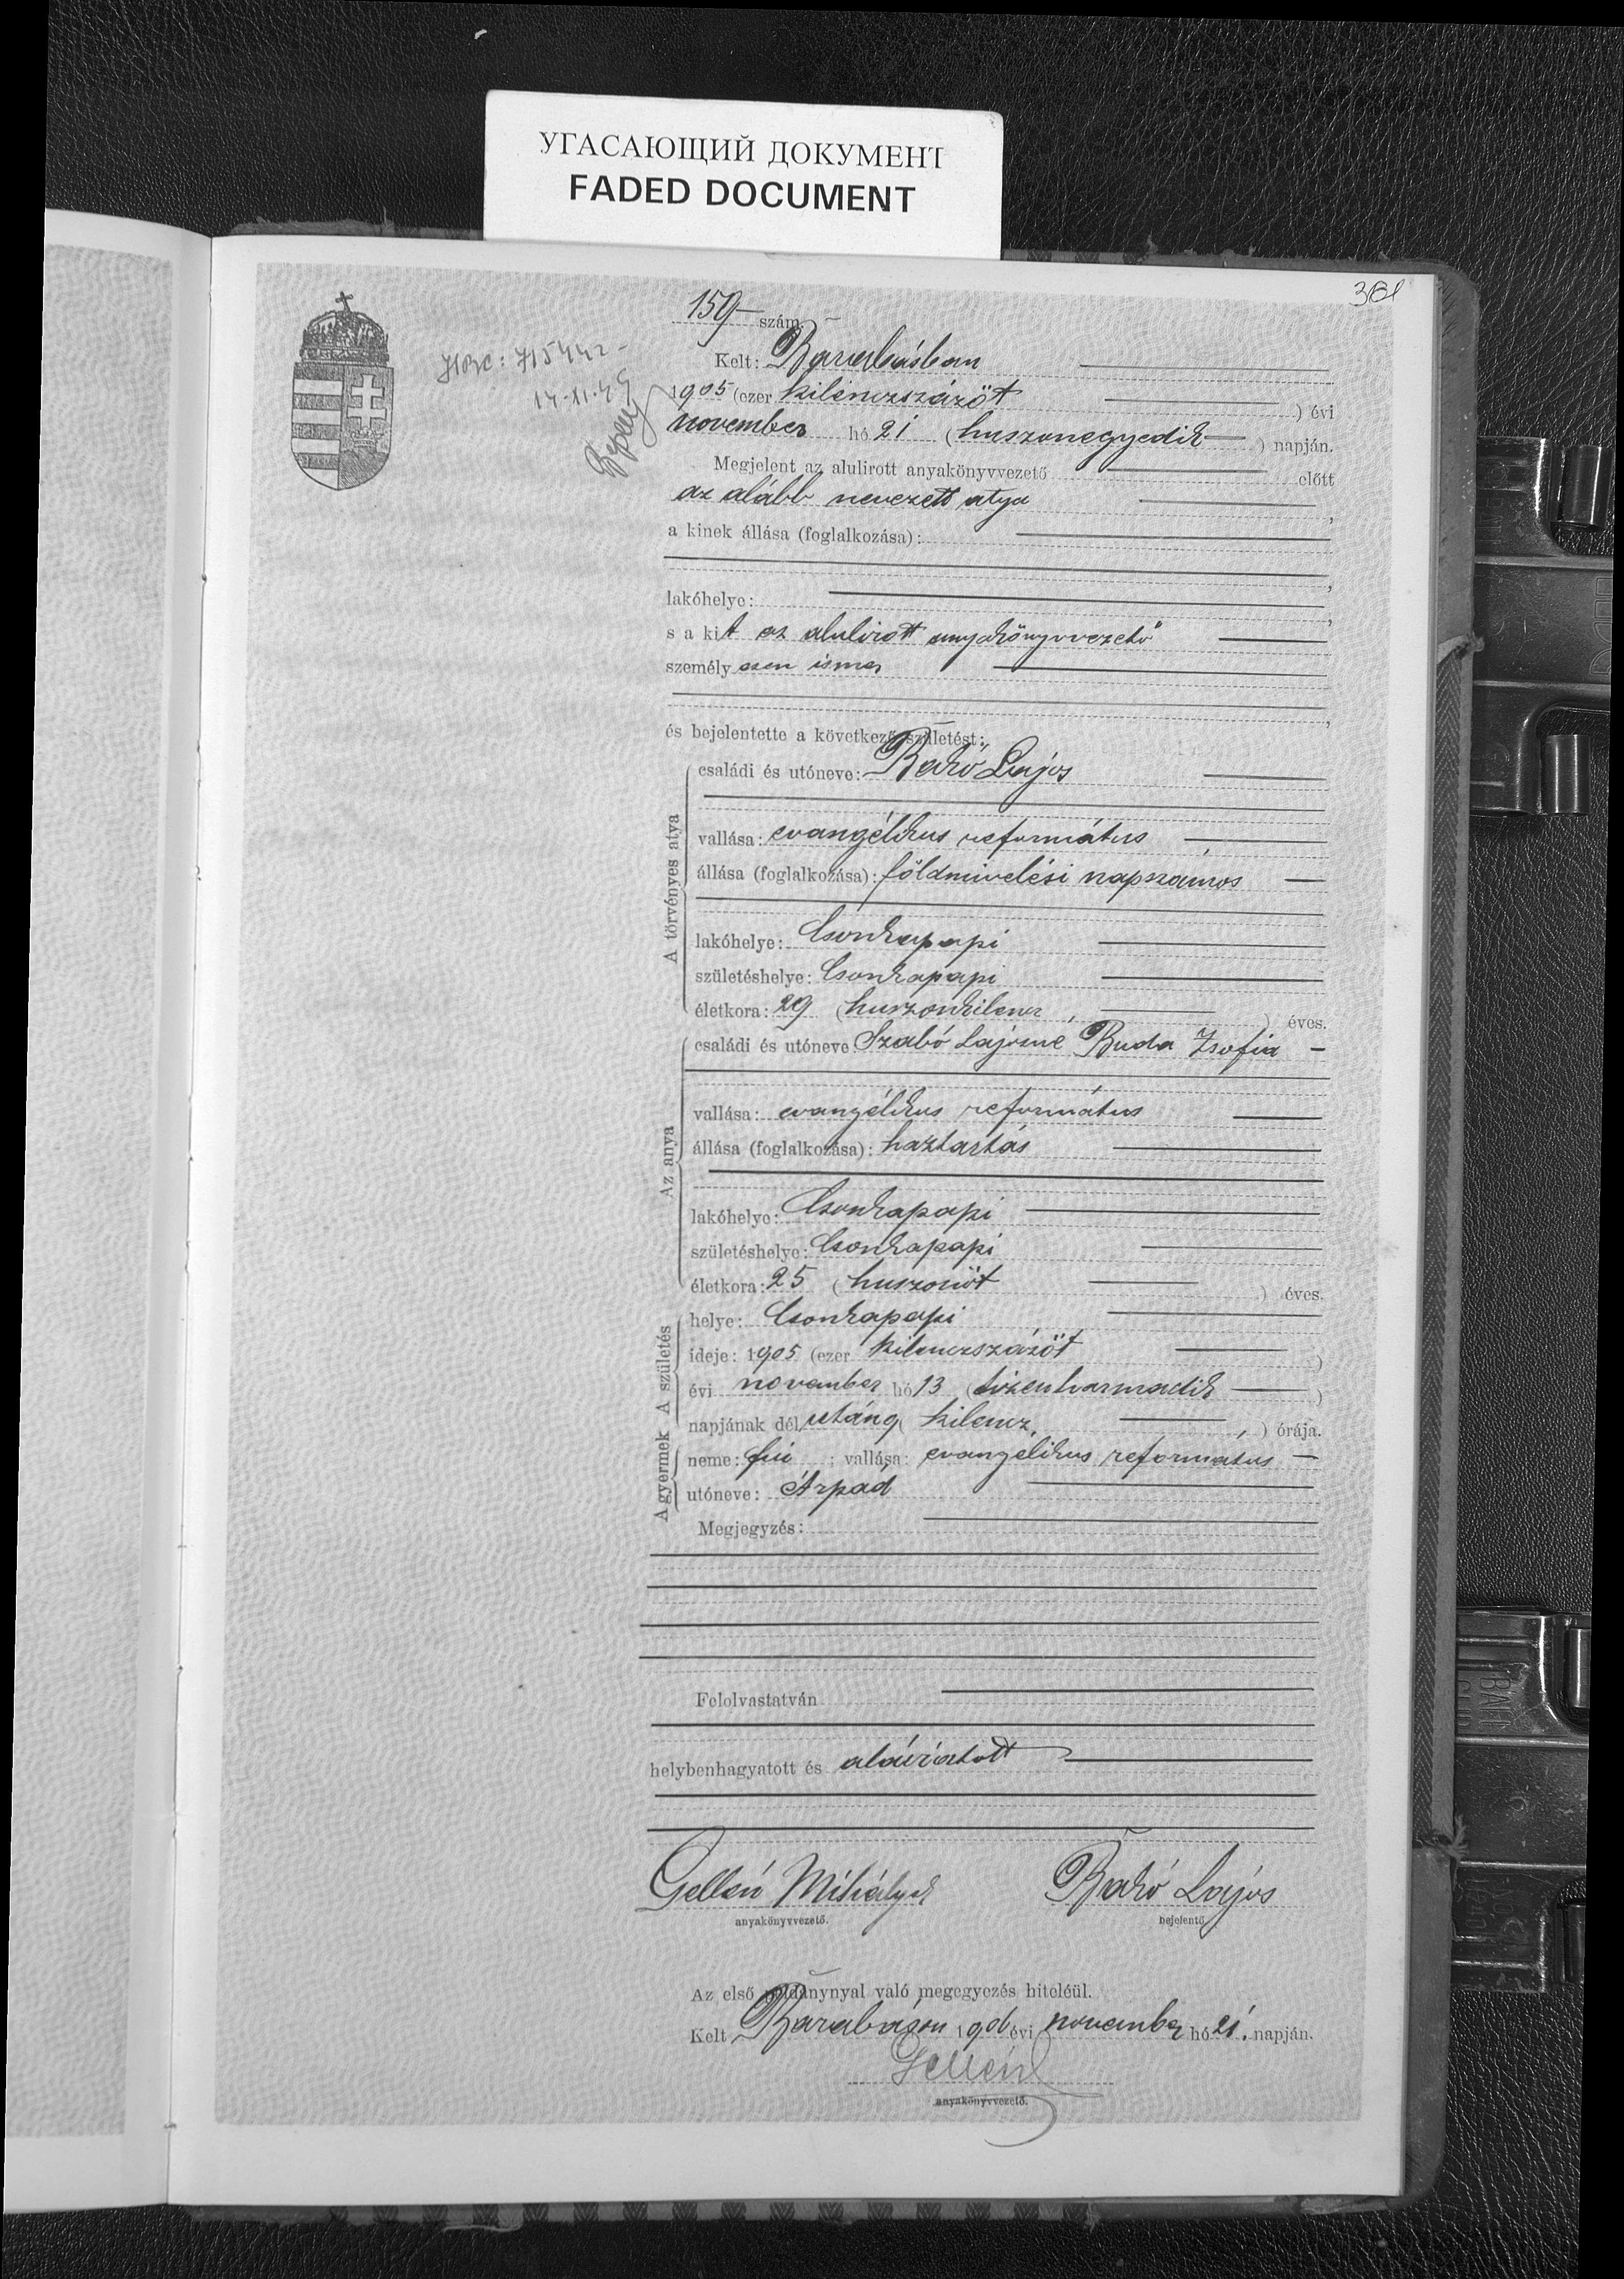 УГАСАЮЩИЙ ДОКУМЕНТ
FADED DOCUMENT
159 szám.
Kelt: Barabásban
1905 (ezer kilenczszázöt ) évi
november hó 21 (huszonegyedik ) napján.
Megjelent az alulirott anyakönyvvezető előtt
az alább nevezett atya,
a kinek állása (foglalkozása):
lakóhelye:
s a kit az alulirott anyakönyvvezető
személyesen ismer
és bejelentette a következő születést:
A törvényes atya
családi és utóneve: Bakó Lajos
vallása: evangélikus református
állása (foglalkozása): földmivelési napszámos
lakóhelye: Csonkapapi
születéshelye: Csonkapapi
életkora: 29 (huszonkilencz ) éves.
Az anya
családi és utóneve Szabó Lajosné Buda Zsofia
vallása: evangélikus református
állása (foglalkozása): háztartás
lakóhelye: Csonkapapi
születéshelye: Csonkapapi
életkora: 25 (huszonöt ) éves.
A születés
helye: Csonkapapi
ideje: 1905 (ezer kilenczszázöt )
évi november hó 13 (tizenharmadik )
napjának dél utáni 9 ( kilencz ) órája.
A gyermek
neme: fiú; vallása: evangélikus református
utóneve: Árpád
Megjegyzés:
Felolvastatván
helybenhagyatott és aláiratott
Gellén Mihály
Bakó Lajos
anyakönyvvezető.
bejelentő
Az első példánynyal való megegyezés hiteléül.
Kelt Barabáson 1906 évi november hó 21. napján.
Gellén
anyakönyvvezető.